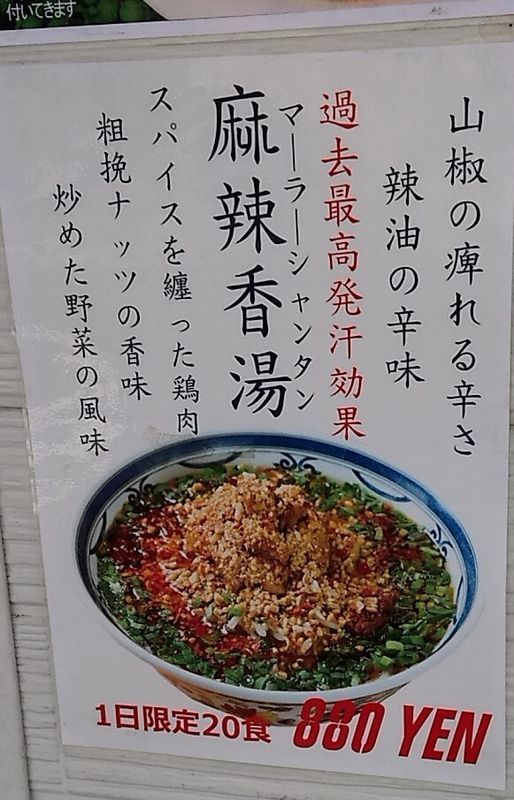 付いてきます
山椒の痺れる辛さ
辣油の辛味
過去最高発汗効果
マーラーシャンタン
麻辣香湯
スパイスを纏った鶏肉
粗挽ナッツの香味
炒めた野菜の風味
1日限定20食
880 YEN